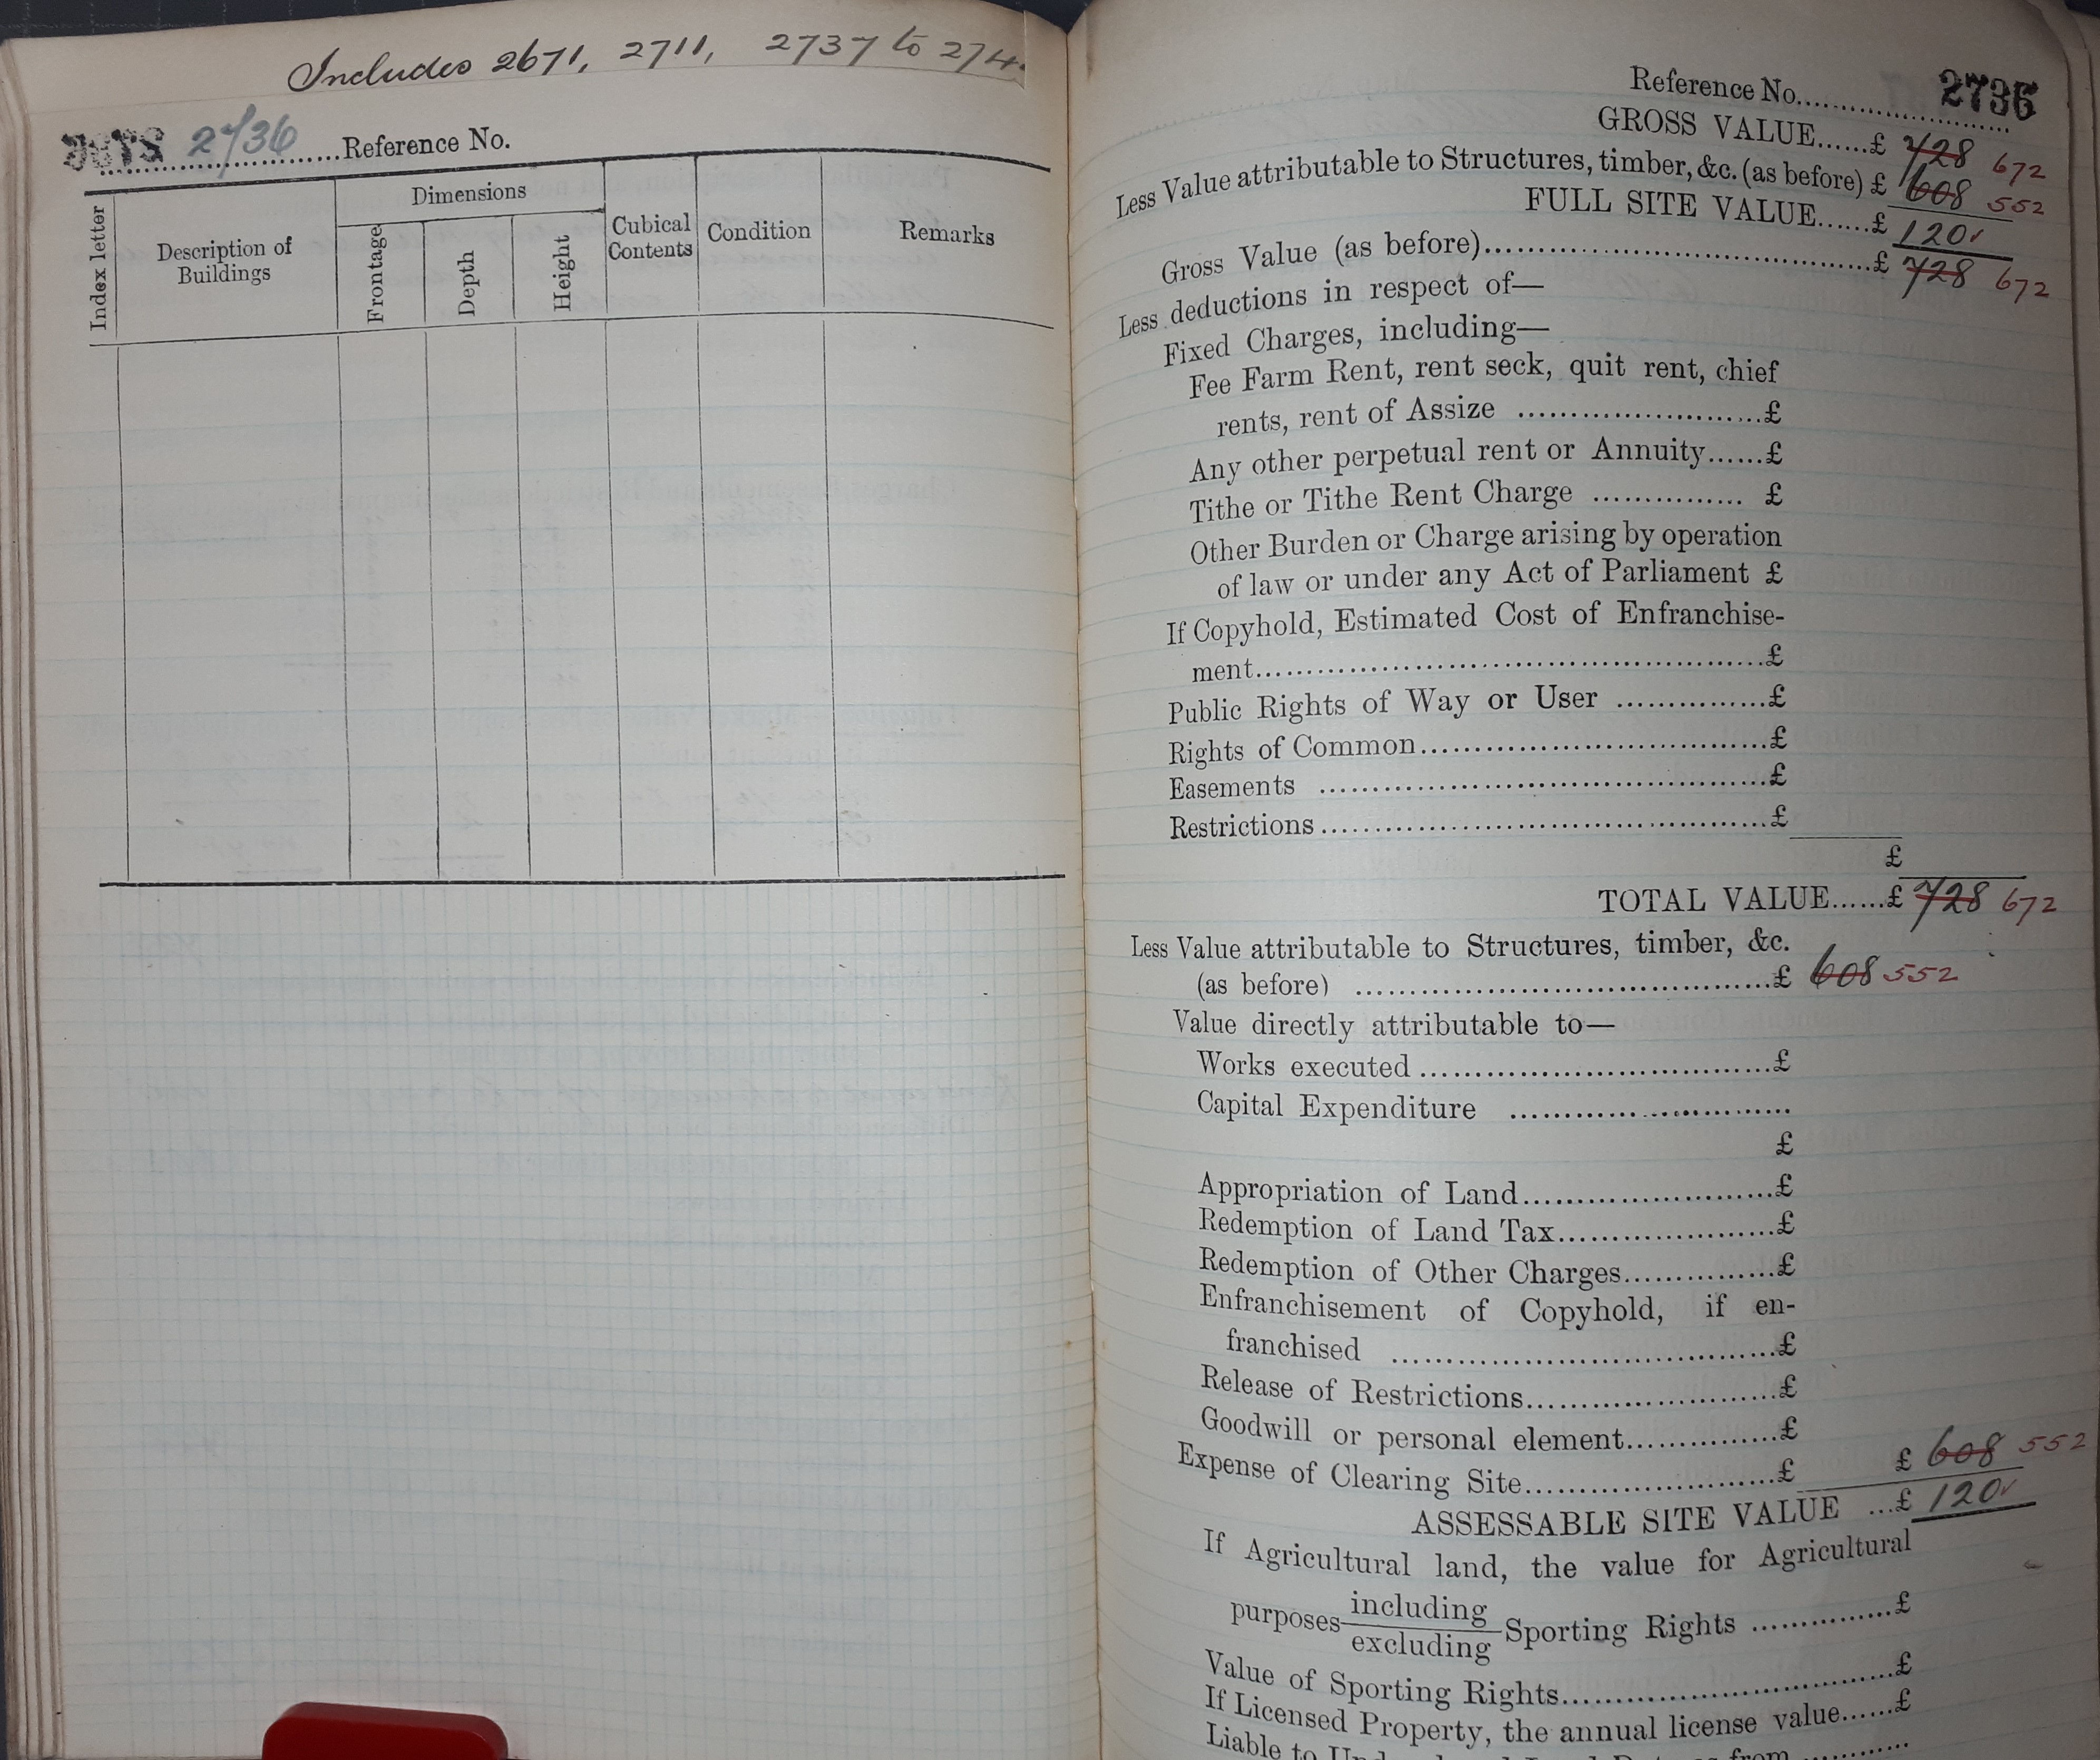 Includes 2671, 2711, 2737 to 274
2736 Reference No.
Index letter
Description of Buildings
Dimensions
Frontage
Depth
Height
Cubical Contents
Condition
Remarks
Reference No. 2736
GROSS VALUE......£ 728 672
Less Value attributable to Structures, timber, &c. (as before) £ 608 552
FULL SITE VALUE......£ 120
Gross Value (as before)......£ 728 672
Less deductions in respect of—
Fixed Charges, including—
Fee Farm Rent, rent seck, quit rent, chief
rents, rent of Assize ......£
Any other perpetual rent or Annuity......£
Tithe or Tithe Rent Charge ......£
Other Burden or Charge arising by operation
of law or under any Act of Parliament £
If Copyhold, Estimated Cost of Enfranchise-
ment......£
Public Rights of Way or User ......£
Rights of Common......£
Easements ......£
Restrictions......£
£
TOTAL VALUE......£ 728 672
Less Value attributable to Structures, timber, &c.
(as before) ......£ 608 552
Value directly attributable to—
Works executed ......£
Capital Expenditure ......
£
Appropriation of Land......£
Redemption of Land Tax......£
Redemption of Other Charges......£
Enfranchisement of Copyhold, if en-
franchised ......£
Release of Restrictions......£
Goodwill or personal element......£
Expense of Clearing Site......£ £ 608 552
ASSESSABLE SITE VALUE ...£ 120
If Agricultural land, the value for Agricultural
purposes including excluding Sporting Rights ......£
Value of Sporting Rights......£
If Licensed Property, the annual license value......£
Liable to